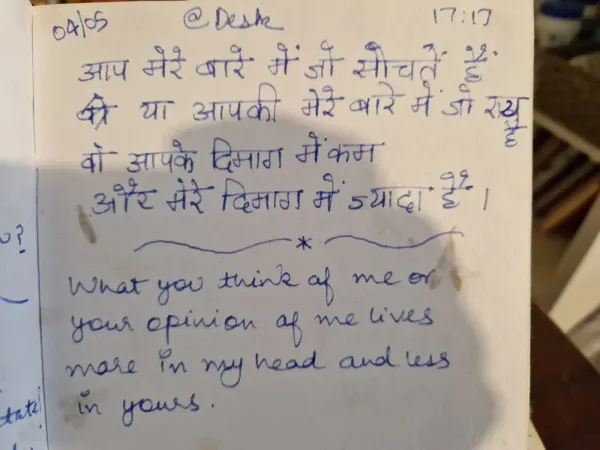 04/05 @Desk 17:17
आप मेरे बारे में जो सोचतें हैं
या आपकी मेरे बारे में जो राय है
वो आपके दिमाग में कम
और मेरे दिमाग में ज्यादा है।
What you think of me or
your opinion of me lives
more in my head and less
in yours.